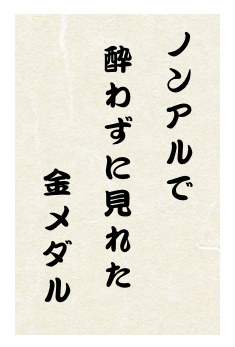 ノンアルで
酔わずに見れた
金メダル